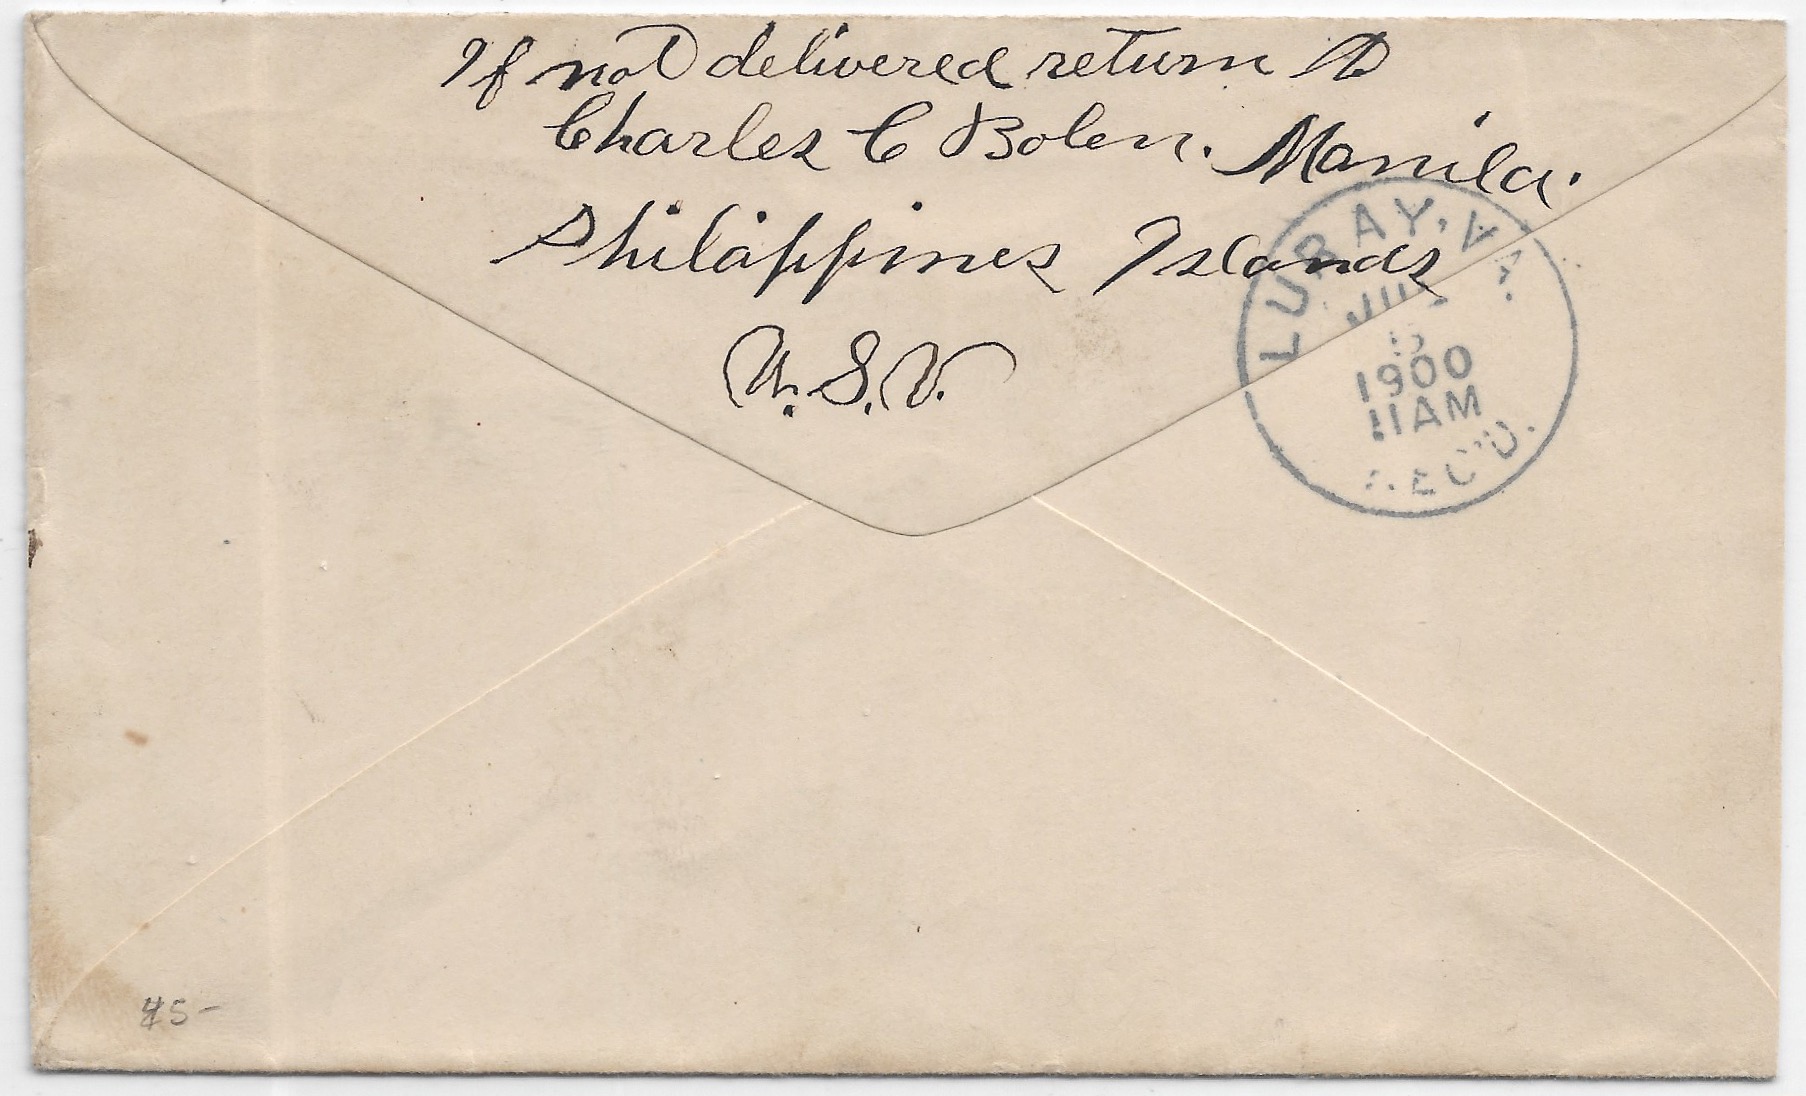 If not delivered return to
Charles C Bolen. Manila.
Philappines Islands
U.S.V.
LURAY, VA.
1900
11 AM
REC'D.